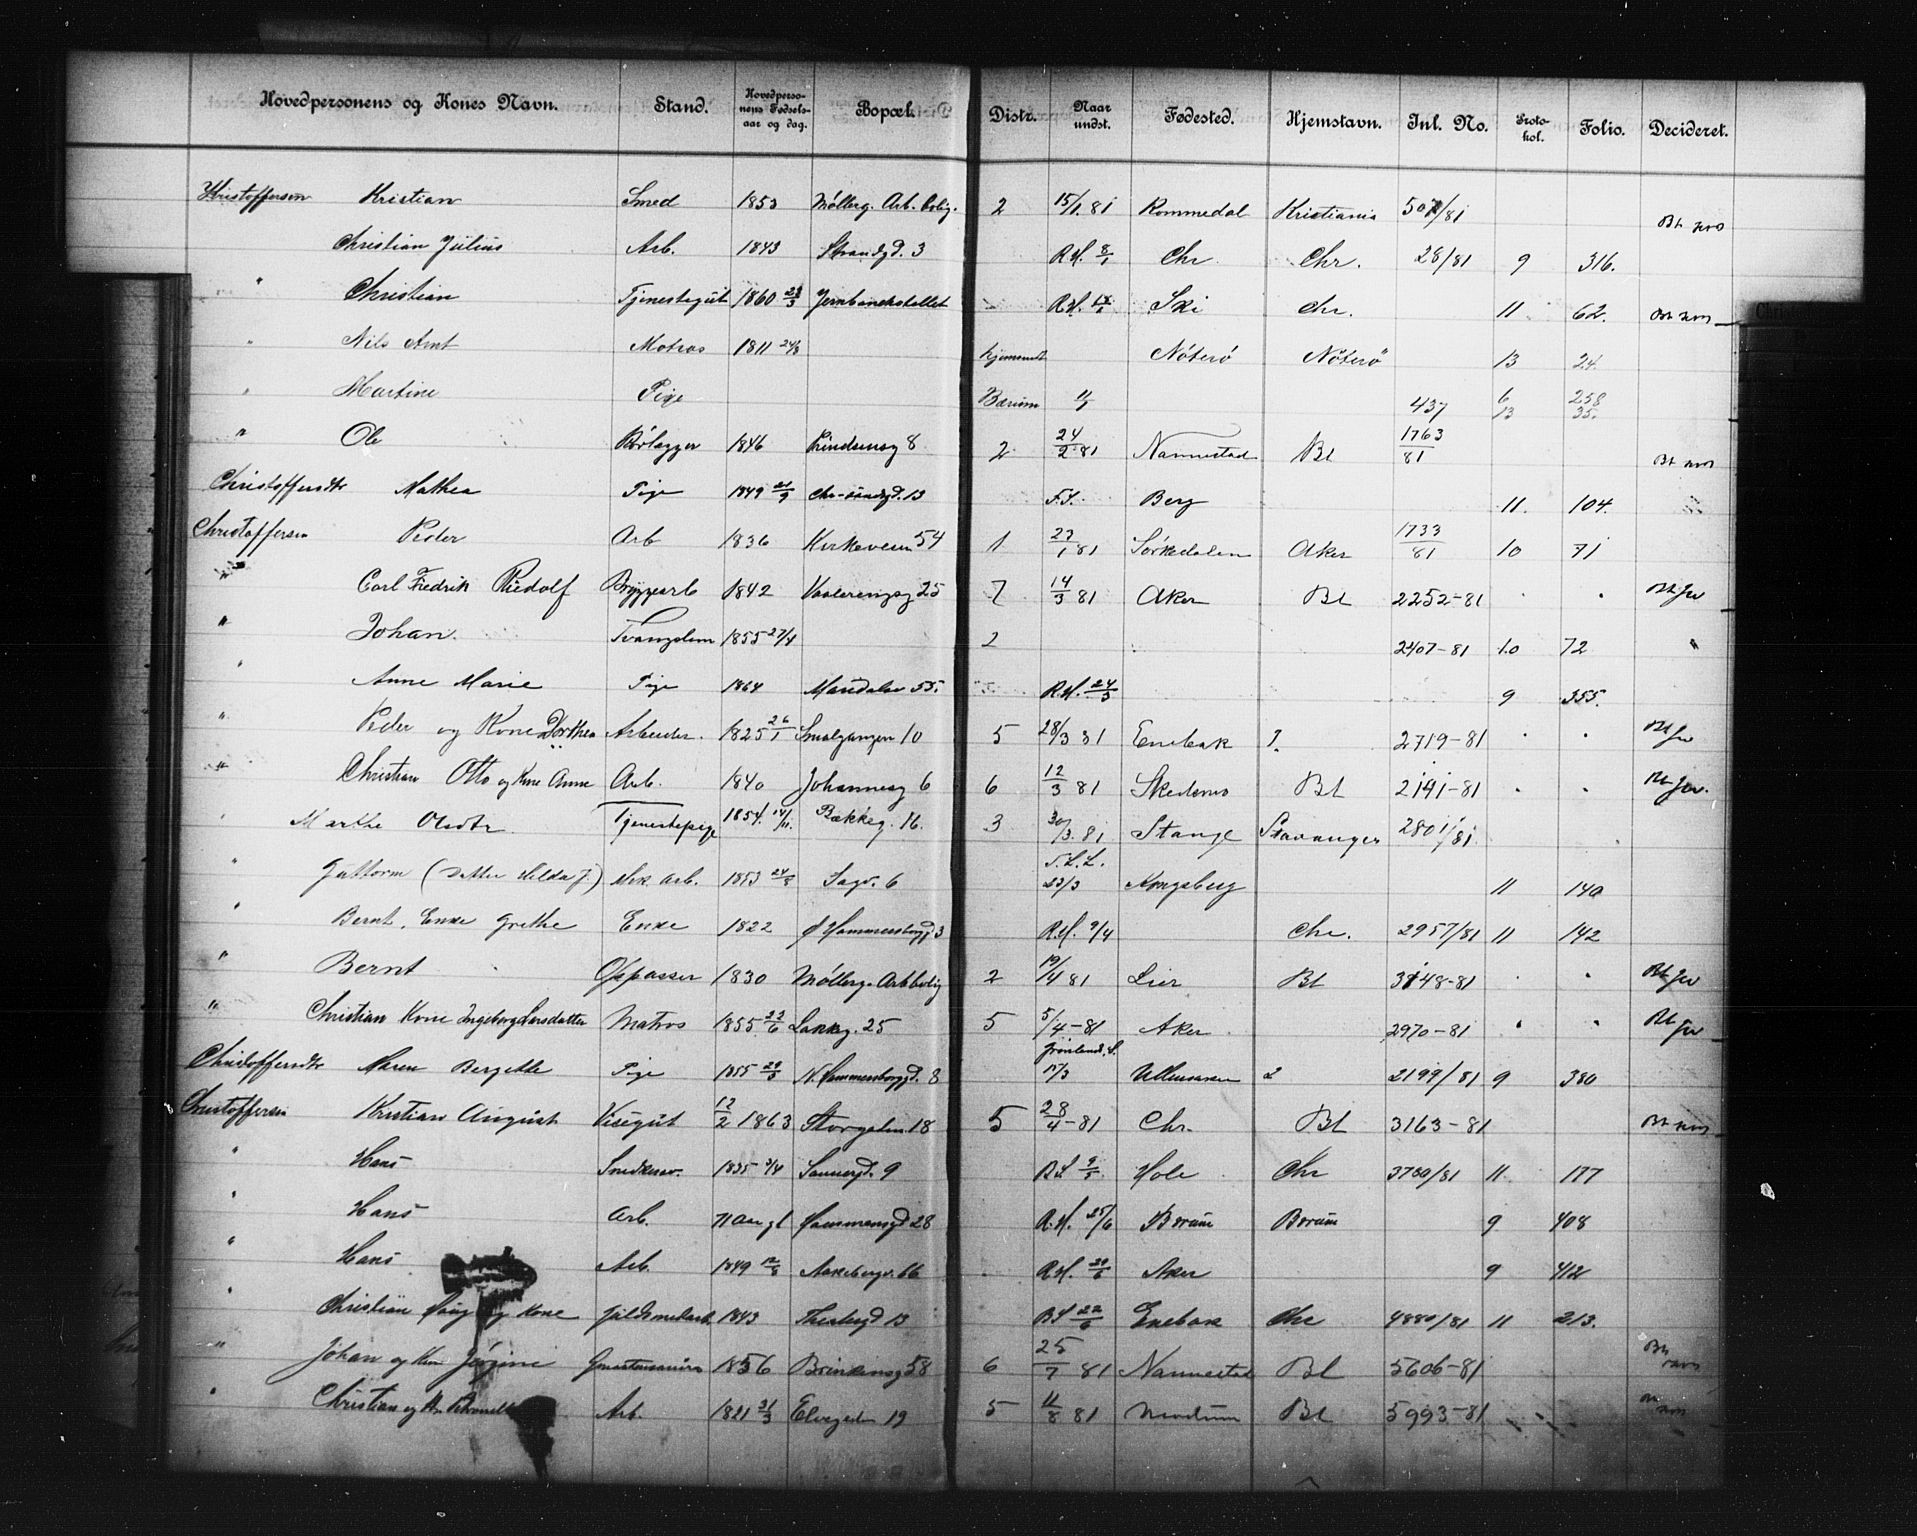 Hovedpersonens og Kones Navn. Stand. Hovedpersonens Fødselsaar og dag. Bopæl. Distr. Naar undst. Fødested. Hjemstavn. Inl. No. Protokol. Folio. Decideret.
Kristoffersen Kristian Smed 1853 Møllerg. Arb. bolig. 2 15/1.81 Rommedal Kristiania /81
Christian Julius Arb. 1843 Strandgd. 3 R.H. 8/1 Chr Chr. 28/81 9 316.
" Christian Tjenestegut 1860 23/3 Jernbanestallet Ski Chr. 11 62.
" Nils Arnt Matros 1811 24/8 hjemsendt Nøterö Nøterö 13 24.
" Martine Pige Bærum 437 6 13 258 35.
" Ole Rørlægger 1846 Rindsensg 8 2 24/2 81 Nannestad Bl 1763/81
Christoffersdtr Mathea Pige 1849 21/9 F.S. Berg 11. 104.
Christoffersen Peder Arb 1836 Kirkeveien 54 1 27/1 81 Sørkedalen Aker 1733/81 10 71
" Carl Fredrik Rudolf Bryggearb 1842 Vaalerengsg 25 7 14/3 81 Aker Bl 2252-81 " "
" Johan. Tvangslem 1855 27/4 2 2407-81 10 72 "
" Anne Marie Pige 1864 Maridalsv 55. R.H. 24/3 9 355.
" Peder og Kone Dorthea Arbeider. 1825 26/1 Smalgangen 10 5 28/3 81 Enebak ? 2719-81 " "
" Christian Otto og Kone Anne Arb. 1840 Johannesg 6 6 12/3 81 Skedsmo Bl 2141-81 " "
" Marthe Olsdtr Tjenestepige 1854. 14/11. Bækkeg. 16. 3 30/3. 81 Stange Stavanger 2801/81.
" Guttorm (Datter Hilda J.) Arb. 1853 24/8 Sagv. 6 23/3 Kongsberg 11 140
" Bernt, Enke Grethe Enke 1822 Ø Hammersborgg 3 R.H. 9/4 Chr. 2957/81 11 142
" Bernt Oppasser 1830 Møllerg. Arbbolig 2 19/4 81 Lier Bl 3148-81 " "
" Christian Kone Ingeborg Larsdatter Matros 1855 22/6 Lakkg. 25 5 5/4-81 Aker 2970-81 " "
Christoffersdtr Maren Bergette Pige 1855 N. Hammersborggd. 8 Grønland. S. 17/3 Ullensaker 2199/81 9 380
Christoffersen Kristian August Visegut 12/2 1863 Storgaten 18 5 28/4-81 Chr. Bl 3163-81
" Hans Snedkersv. 1835 Sannergd. 9 9/5 Hole Chr 3700/81 11. 177
" Hans Arb. Hausmansgd 28 R.H. 25/6 Bærum Bærum 9 408
" Hans Arb. 1849 12/8 Aakebergv. 66 R.H. 29/6 Aker 9 412
" Christian og Kone Guldsmedarb. 1843 Thestrgd 13 22/6 Enebak Chr 4880/81 11 213.
" Johan og Kone Jørgine 1856 Brinkensg 58 6 25/7 81 Nannestad Bl 5606-81
" Christian og Kr. Petronelle Arb. 1821 31/3 Elvegaden 19 5 11/8 81 Modum Bl 5993-81